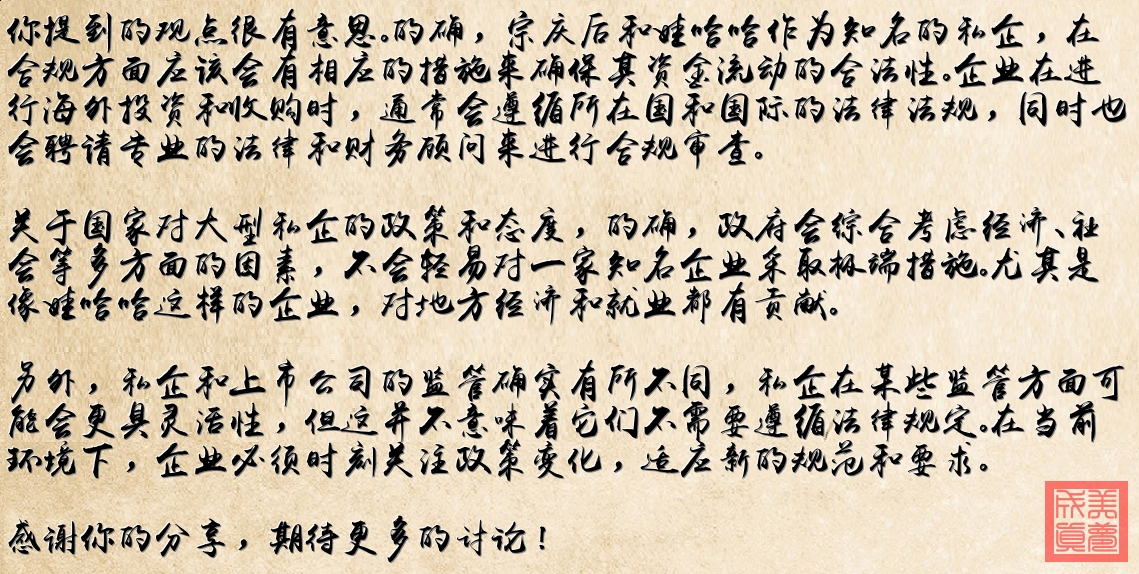 你提到的观点很有意思。的确，宗庆后和娃哈哈作为知名的私企，在
合规方面应该会有相应的措施来确保其资金流动的合法性。企业在进
行海外投资和收购时，通常会遵循所在国和国际的法律法规，同时也
会聘请专业的法律和财务顾问来进行合规审查。
关于国家对大型私企的政策和态度，的确，政府会综合考虑经济、社
会等多方面的因素，不会轻易对一家知名企业采取极端措施。尤其是
像娃哈哈这样的企业，对地方经济和就业都有贡献。
另外，私企和上市公司的监管确实有所不同，私企在某些监管方面可
能会更具灵活性，但这并不意味着它们不需要遵循法律规定。在当前
环境下，企业必须时刻关注政策变化，适应新的规范和要求。
感谢你的分享，期待更多的讨论！
美梦成真